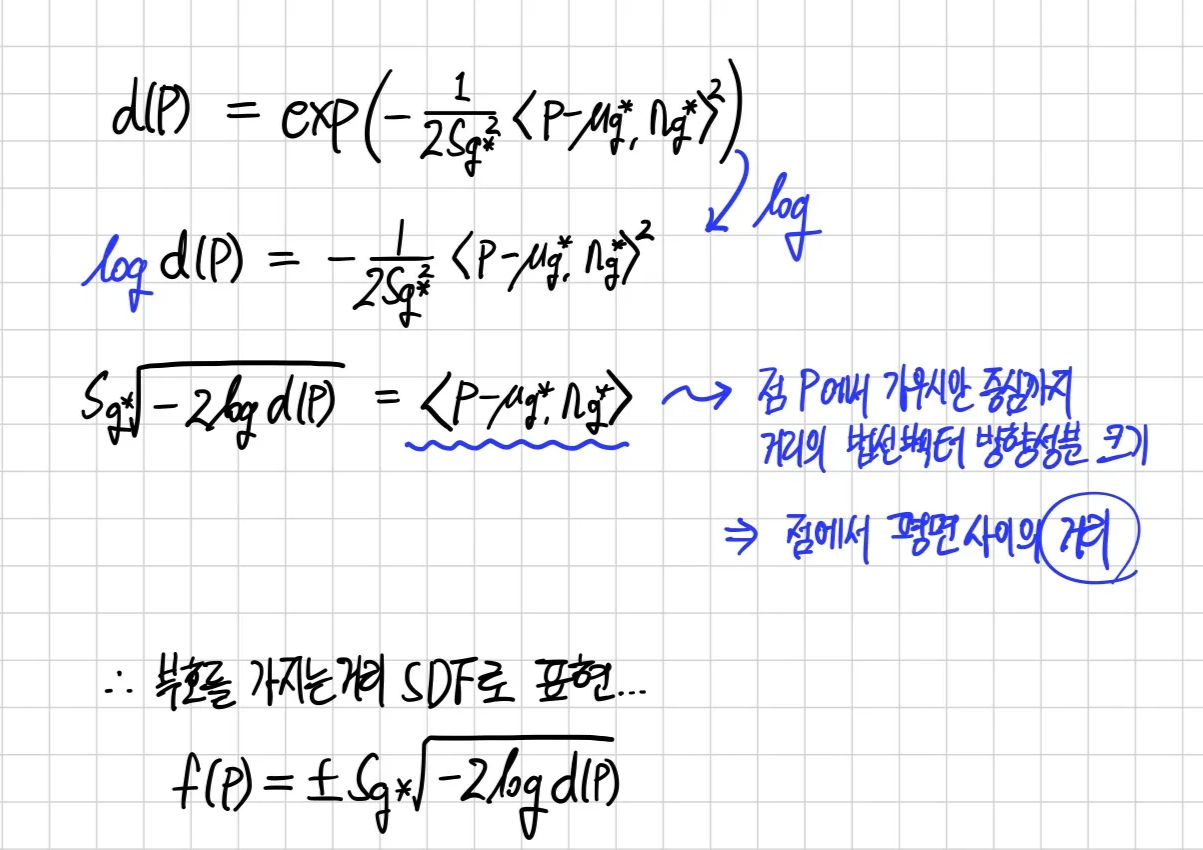 d(P) = exp(-1/(2S_{g*}²) <P-μ_{g*}, n_{g*}>²)
log
log d(P) = -1/(2S_{g*}²) <P-μ_{g*}, n_{g*}>²
S_{g*}√(-2log d(P)) = <P-μ_{g*}, n_{g*}> ⇝ 점 P에서 가우시안 중심까지
거리의 법선벡터 방향성분 크기
⇒ 점에서 평면 사이의 거리
∴ 부호를 가지는 거리 SDF로 표현...
f(P) = ± S_{g*}√(-2log d(P))